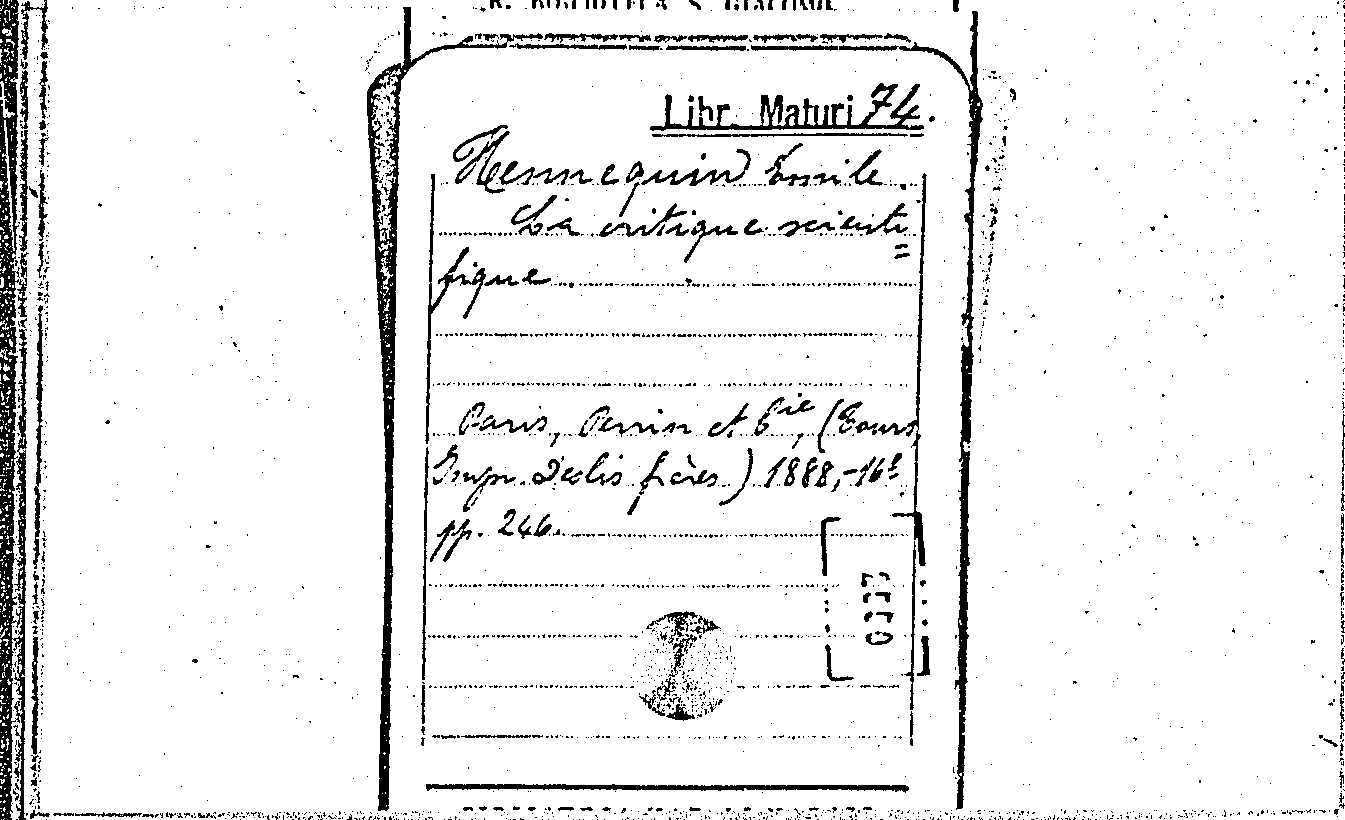 Libr. Maturi 74.
Hennequin Emile.
La critique scienti=
fique.
Paris, Perrin et Cie, (Tours,
Impr. Deslis frères) 1888,-16º,
pp. 246.